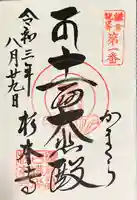 鎌倉
第一番
十一面大悲殿
かまくら
令和三年
八月廿九日
杉本寺